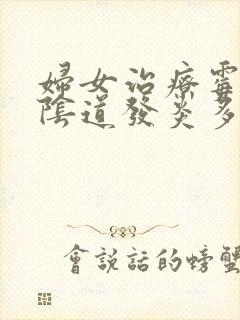 婦女治療霉
陰道發炎多
會說話的螃蟹